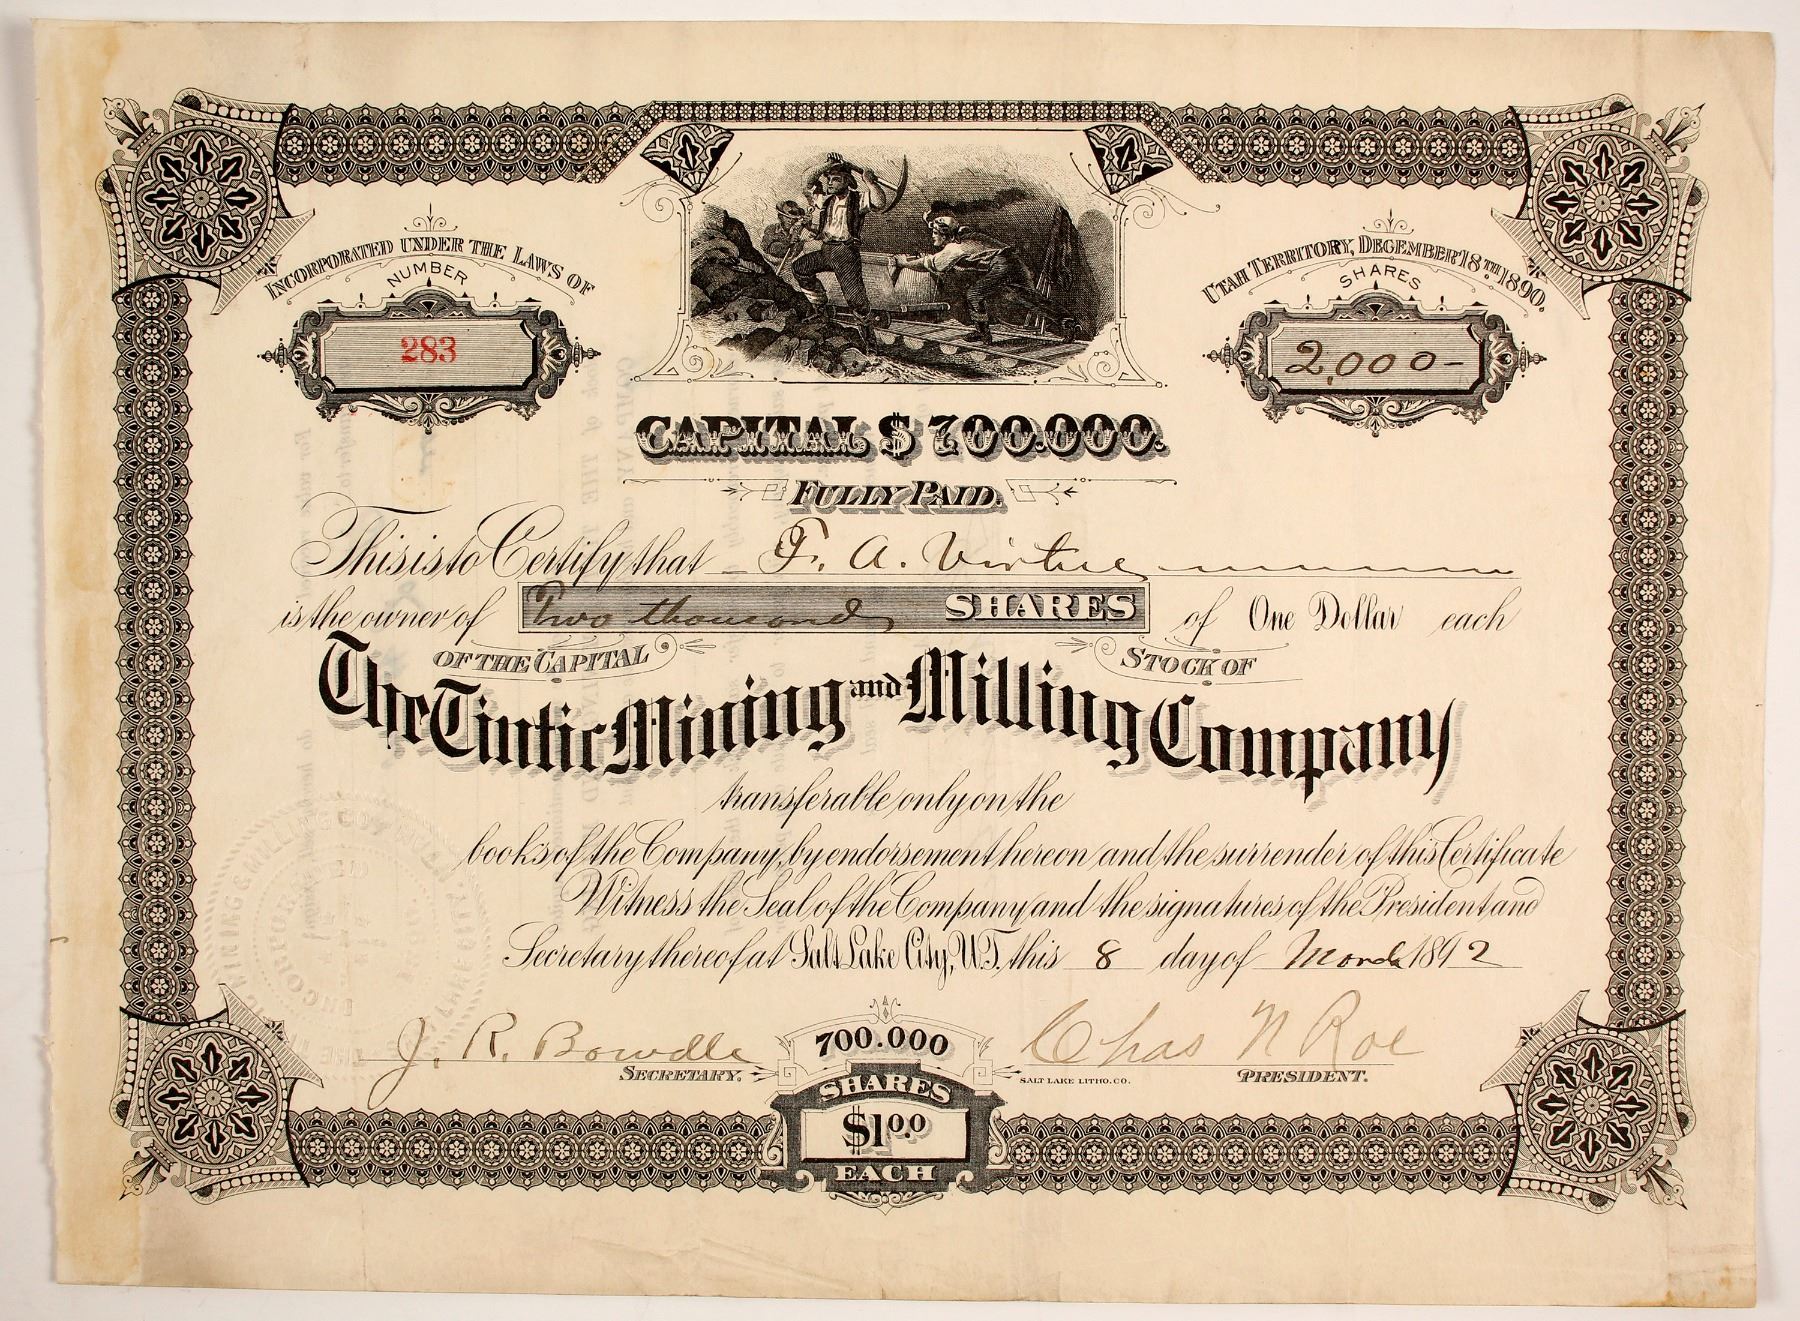 INCORPORATED UNDER THE LAWS OF
UTAH TERRITORY, DECEMBER 18TH 1890.
NUMBER
283
SHARES
2,000-
CAPITAL $ 700.000.
FULLY PAID.
This is to Certify that F. A. Virtue
is the owner of Two thousand SHARES of One Dollar each
OF THE CAPITAL STOCK OF
The Tintic Mining and Milling Company
transferable only on the
books of the Company, by endorsement hereon and the surrender of this Certificate
Witness the Seal of the Company and the signatures of the President and
Secretary thereof at Salt Lake City, U.T. this 8 day of March 1892
J. R. Bowdle
SECRETARY.
700.000
SHARES
$1 0.0
EACH
Chas N Roe
SALT LAKE LITHO. CO.
PRESIDENT.
MINING & MILLING CO
INCORPORATED